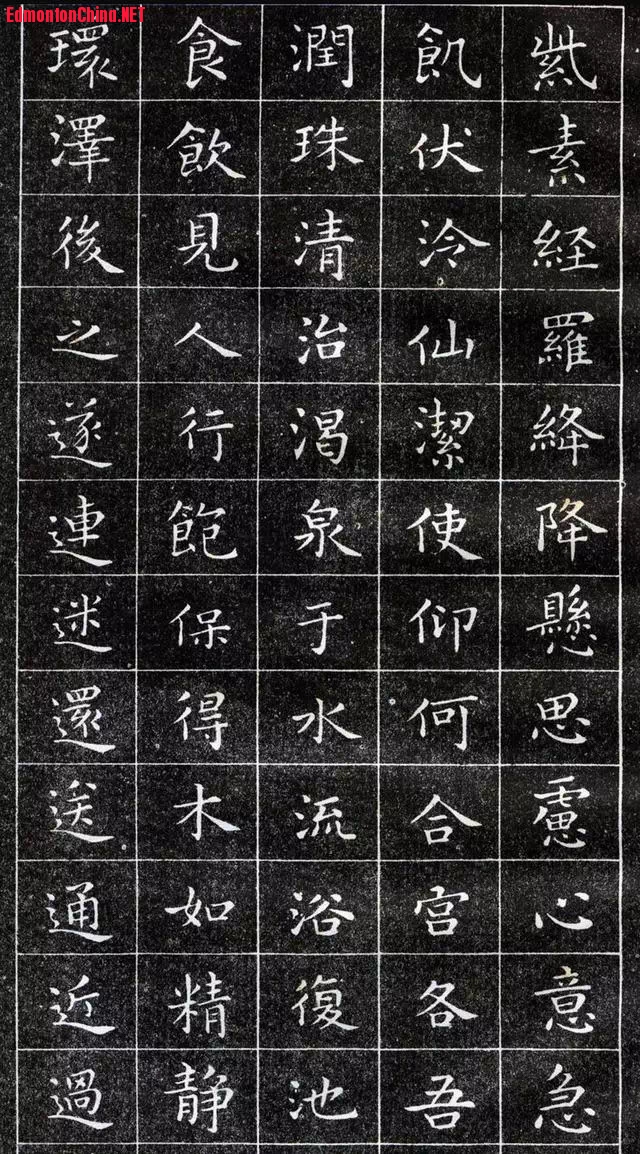 EdmontonChina.NET
紫素経羅絳降懸思慮心意急
飢伏泠仙潔使仰何合宮各吾
潤珠清治渴泉于水流浴復池
食飲見人行飽保得木如精静
環澤後之遂連迷還送通近過